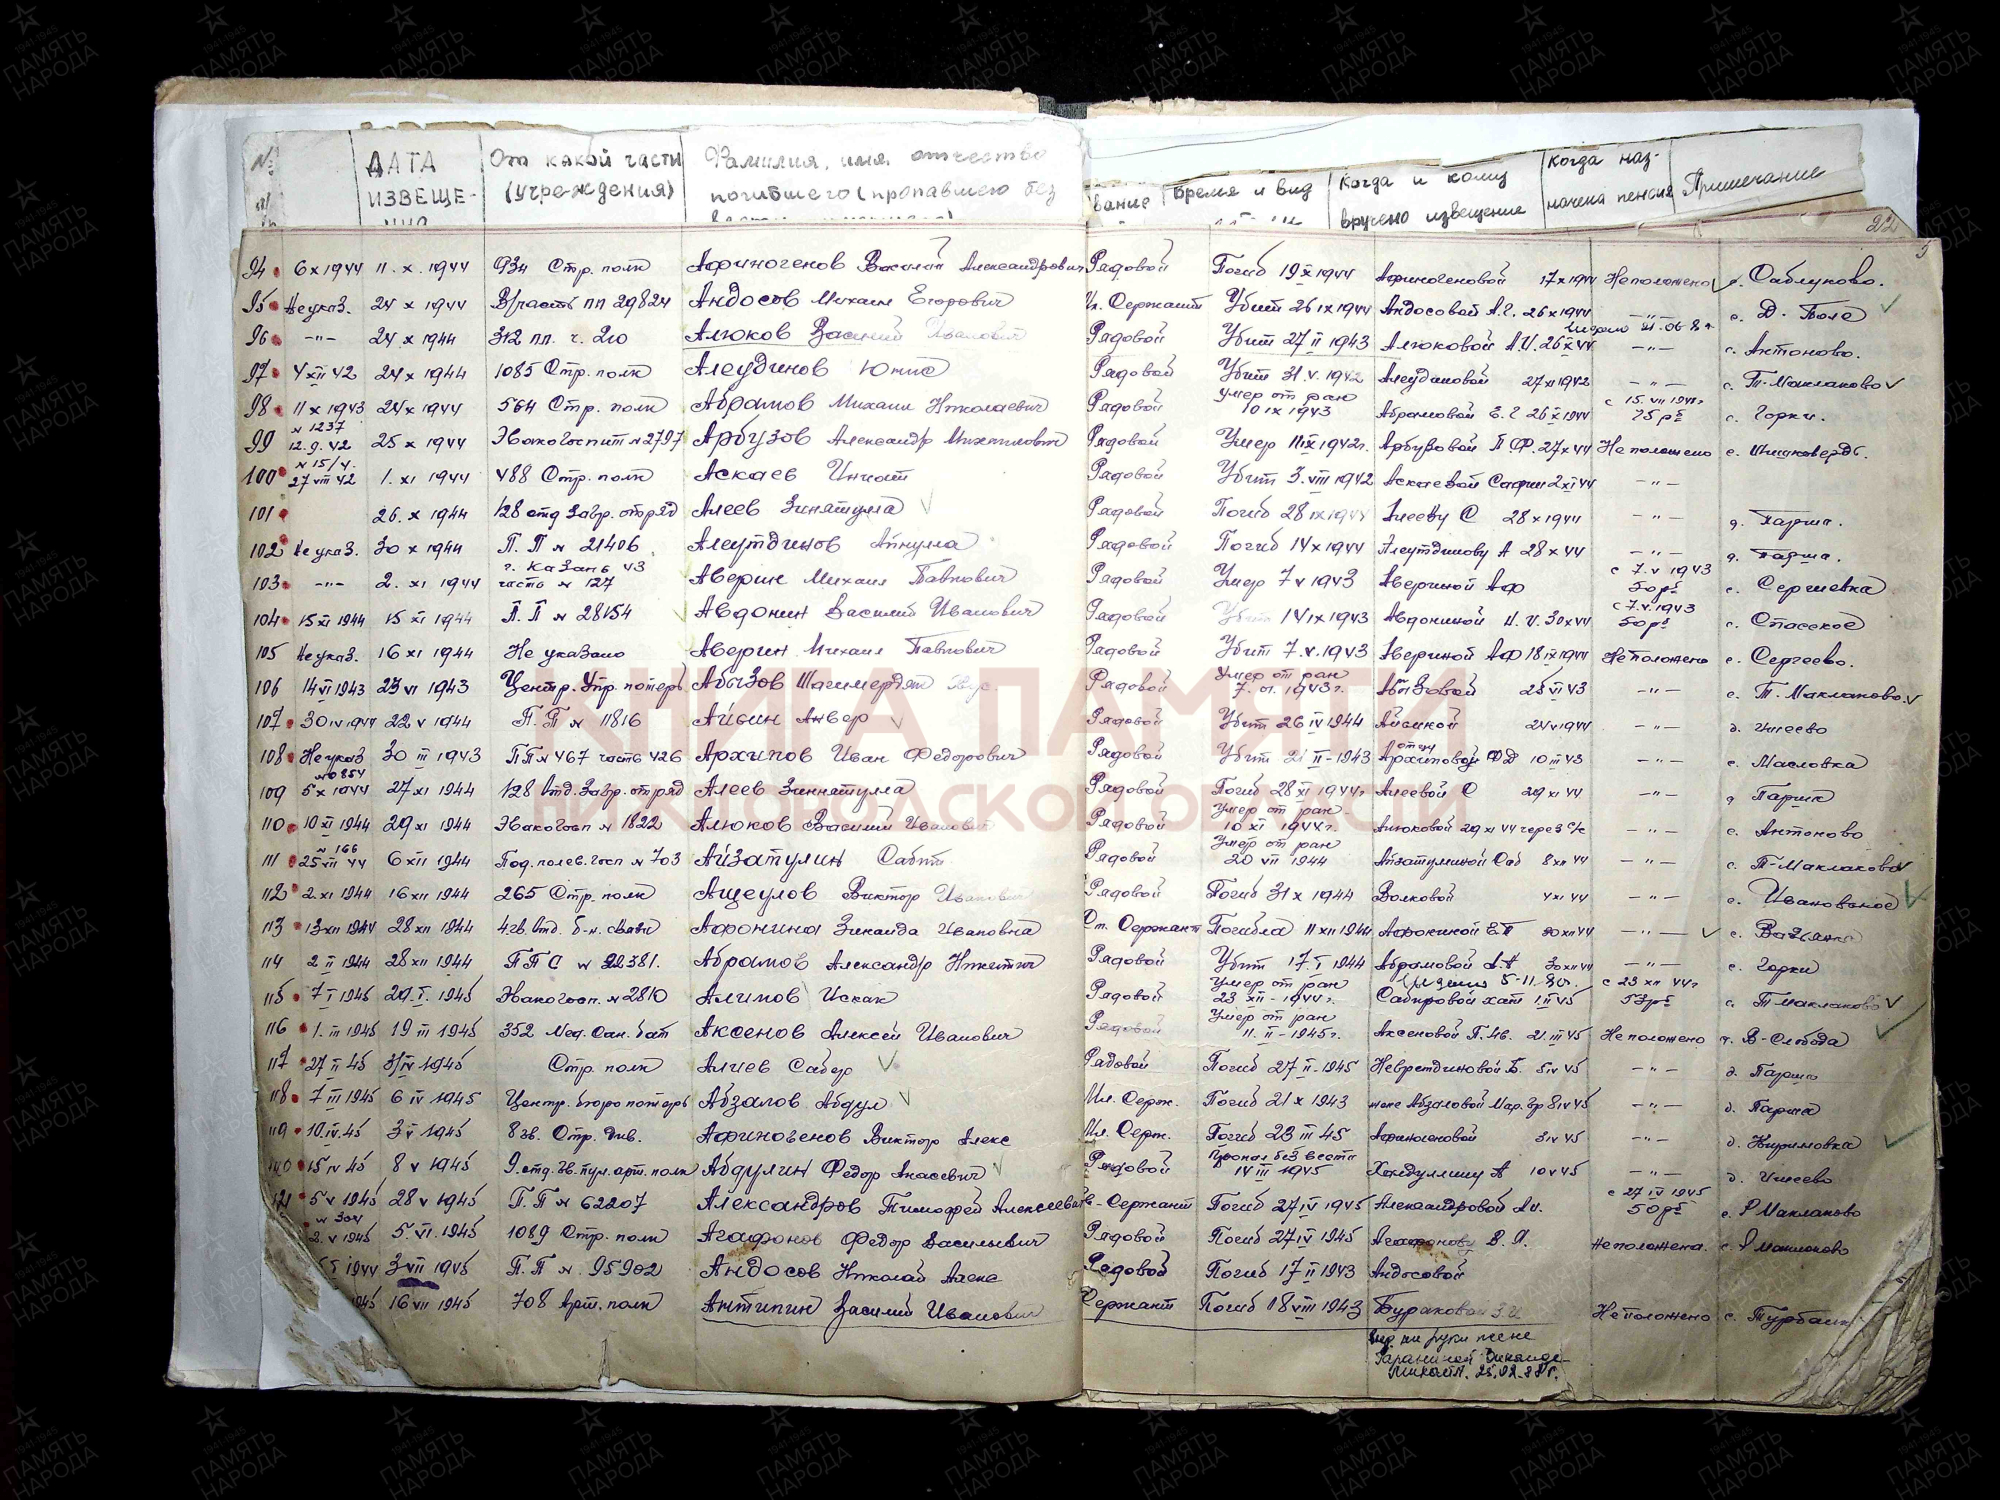 № ДАТА ИЗВЕЩЕ- От какой части (учреждения) Фамилия, имя, отчество погибшего (пропавшего без
вание Время и вид Когда и кому вручено извещение Когда наз- начена пенсия Примечание
22
94 6 X 1944 11. X. 1944 934 Стр. полк Афиногенов Василий Александрович Рядовой Погиб 19 X 1944 Афиногеновой 17 X 1944 Не положено с. Саблуково.
95 Не указ. 24 X 1944 В/часть пп 29824 Андосов Михаил Егорович Мл. Сержант Убит 26 IX 1944 Андосовой А.Г. 26 X 1944 -"- с. Д-Поле
96 -"- 24 X 1944 312 пп. ч. 210 Алюков Василий Иванович Рядовой Убит 27 II 1943 Алюковой А.И. 26 X 44 -"- с. Антоново.
97 4 XII 42 24 X 1944 1085 Стр. полк Алеудинов Юнис Рядовой Убит 31. V. 1942 Алеудиновой 27 XI 1942 -"- с. Т-Маклаково
98 11 X 1943 24 X 1944 564 Стр. полк Абрамов Михаил Николаевич Рядовой Умер от ран 10 IX 1943 Абрамовой Е.Г 26 X 1944 с 15. VII 1944г 75 рб с. Горки.
99 № 1237 12.9.42 25 X 1944 Эвакогоспит № 2797 Арбузов Александр Рядовой Умер 11 IX 1942г. Арбузовой П.Ф. 27 X 44 Не положено с.
100 № 15/4. 27 VIII 42 1. XI 1944 488 Стр. полк Аскаев Рядовой Убит 3. VIII 1942 Аскаевой 2 XI 44 -"-
101 26. X 1944 128 отд Загр. отряд Алеев Зинятулла Рядовой Погиб 28 IX 1944 Алееву С 28 X 1944 -"- д. Парша.
102 Не указ. 30 X 1944 П. П № 21406 Алеутдинов Рядовой Погиб 14 X 1944 Алеутдинову А 28 X 44 -"- д. Парша.
103 -"- 2. XI 1944 г. Казань 43 часть № 127 Аверин Михаил Павлович Рядовой Умер 7 V 1943 Авериной АФ с 7. V 1943 50 рб с. Сергиевка
104 15 XI 1944 15 XI 1944 П. П № 28154 Авдонин Василий Иванович Рядовой Убит 14 IX 1943 Авдониной Н. И. 30 X 44 с 7. V. 1943 50 рб с. Спасское
105 Не указ. 16 XI 1944 Не указано Аверин Михаил Павлович Рядовой Убит 7. V. 1943 Авериной АФ 18 IX 1944 Не положено с. Сергеево.
106 14 VI 1943 23 VI 1943 Центр. Упр. потерь Абызов Рядовой Умер от ран 1943г. Абызовой 25 VI 43 -"- с. Т. Маклаково.
107 30 IV 1944 22 V 1944 П. П № 11816 Айсин Анвер Рядовой Убит 26 IV 1944 Айсиной 24 V 1944 -"- д. Ишеево
108 Не указ 30 III 1943 ПП № 467 часть 426 Архипов Иван Федорович Рядовой Убит 21 II-1943 отцу Архипову ФД 10 III 43 -"- с. Масловка
109 № 0854 5 X 1944 27 XI 1944 128 Отд. Загр. отряд Алеев Зиннятулла Рядовой Погиб 28 XI 1944г Алеевой С 29 XI 44 -"- д Парша
110 10 XI 1944 29 XI 1944 Эвакогосп № 1822 Алюков Василий Иванович Рядовой Умер от ран 10 XI 1944г. Алюковой 29 XI 44 через с/с -"- с. Антоново
111 № 166 25 VII 44 6 XII 1944 Под. полев. госп № 703 Айзатулин Сабит Рядовой Умер от ран 20 VII 1944 Айзатулиной Саб 8 XII 44 -"- с. Т-Маклаково
112 2. XI 1944 16 XII 1944 265 Стр. полк Ащеулов Виктор Иванович Рядовой Погиб 31 X 1944 Волковой 4 XI 44 -"- с. Ивановское
113 13 XII 1944 28 XII 1944 4 гв. Отд. б-н. связи Афонина Зинаида Ивановна Ст. Сержант Погибла 11 XII 1944 Афониной Е.П 30 XII 44 -"- с.
114 2 II 1944 28 XII 1944 ППС № 22381. Абрамов Александр Рядовой Убит 17. I 1944 Абрамовой А.А 30 XII 44 -"- с. Горки
115 7 I 1945 29. I. 1945 Эвакогосп. № 2810 Алимов Искак Рядовой Умер от ран 23 XII-1944г. Сабировой 1 II 45 с 23 XII 44г 53 рб с. Т Маклаково
116 1. III 1945 19 III 1945 352 Мед. Сан. бат Аксенов Алексей Иванович Рядовой Умер от ран 11. II-1945г. Аксеновой П. Ив. 21. III 45 Не положено с. В-Слобода
117 27 II 45 3/IV 1945 Стр. полк Алиев Сабер Рядовой Погиб 27 II 1945 Невретдиновой Б. 5 IV 45 -"- д. Парша
118 7 III 1945 6 IV 1945 Центр. бюро потерь Абзалов Абдул Мл. Серж. Погиб 21 X 1943 жене Абзаловой Мар. Гр 8 IV 45 -"- д. Парша
119 10. IV. 45 3 V 1945 8 гв. Стр. див. Афиногенов Виктор Алекс Мл. Серж. Погиб 23 III 45 Афиногеновой 3 IV 45 -"- д.
15 IV 45 8 V 1945 9. отд. гв. пул. арт. полк Абдулин Федор Рядовой Пропал без вести 14 III 1945 10 V 45 -"- д. Ишеево
121 5 V 1945 28 V 1945 П. П № 62207 Александров Тимофей Алексеевич Сержант Погиб 27 IV 1945 Александровой Ан. с 27 IV 1945 50 рб с. Р Маклаково
№ 304 2. V 1945 5. VI. 1945 1089 Стр. полк Агафонов Федор Васильевич Рядовой Погиб 27 IV 1945 Агафонову В. Я. Не положена. с. Р Маклаково
1944 3 VII 1945 П. П № 95902 Андосов Николай Алекс Рядовой Погиб 17 II 1943 Андосовой
1945 16 VII 1945 708 Арт. полк Антипин Василий Иванович Сержант Погиб 18 VIII 1943 Бураковой З.И Не положено с.
на руки жене
25.02.88г.
КНИГА ПАМЯТИ
НИЖЕГОРОДСКОЙ ОБЛАСТИ
1941-1945 ПАМЯТЬ НАРОДА